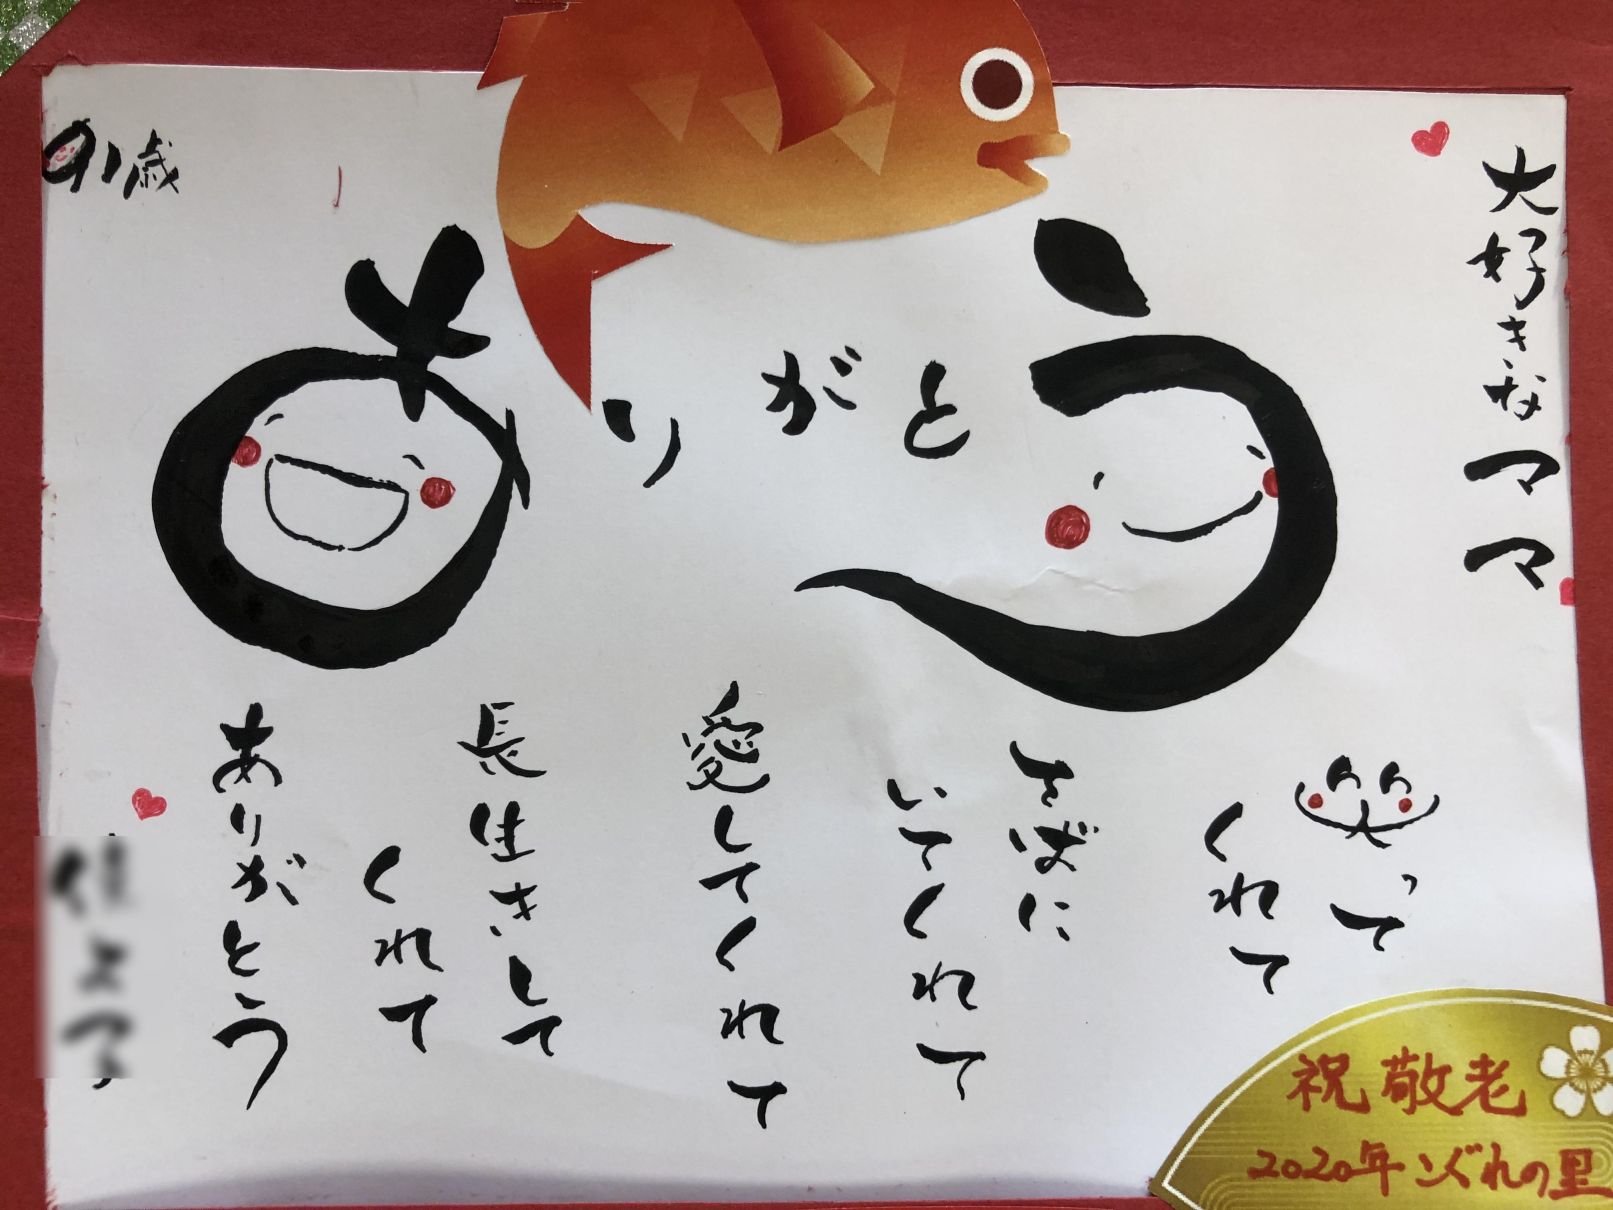 大好きなママ
ありがとう
91歳
笑って
くれて
そばに
いてくれて
愛してくれて
長生きして
くれて
ありがとう
祝敬老
2020年 いぐれの里